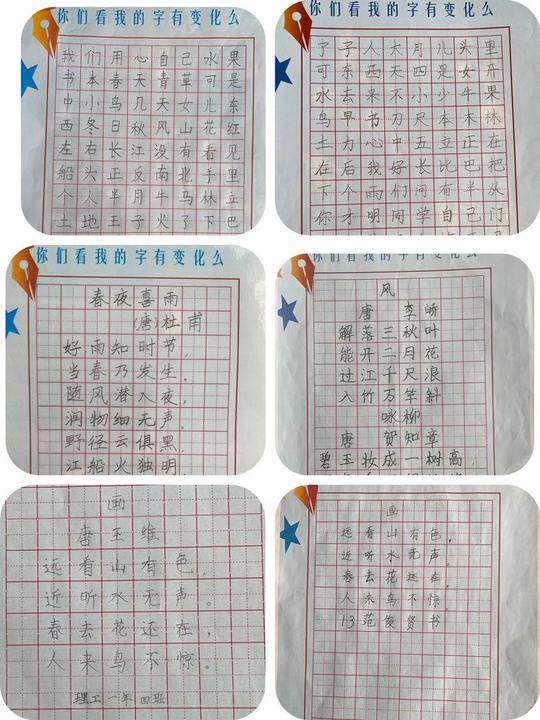 你们看我的字有变化么
我们用心自己水果
书本春天青草可是
中小鸟几天女儿东
西冬日秋风山花红
左右长江没有看见
船头正反南北手里
个人半月牛马林立
土地王子火了下巴
你们看我的字有变化么
了子人大月儿头里
可东西天四是女开
水去来不小少牛果
鸟早书刀尺本木林
土力心中五立正在
在后我好长比巴把
下个雨们问有半从
你才明闻学自己门
你们看我的字有变化么
春夜喜雨
(唐)杜甫
好雨知时节,
当春乃发生。
随风潜入夜,
润物细无声。
野径云俱黑,
江船火独明。
你们看我的字有变化么
风
唐 李峤
解落三秋叶
能开二月花
过江千尺浪
入竹万竿斜
咏柳
唐 贺知章
碧玉妆成一树高,
画
唐王维
远看山有色,
近听水无声。
春去花还在,
人来鸟不惊。
理工一年四班
画
远看山有色,
近听水无声
春去花还在,
人来鸟不惊
1.3范俊贤书